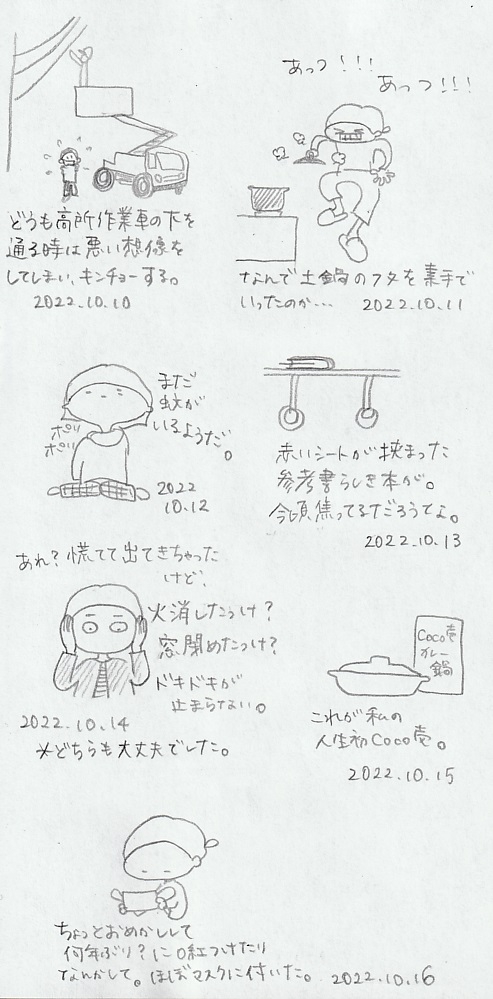 どうも高所作業車の下を
通る時は悪い想像を
してしまい、キンチョーする。
2022.10.10
あっつ!!!
あっつ!!!
なんで土鍋のフタを素手で
いったのか… 2022.10.11
まだ
蚊が
いるようだ。
ポリ
ポリ
2022
10.12
赤いシートが挟まった
参考書らしき本が。
今頃焦ってるだろうてよ。
2022.10.13
あれ?慌てて出てきちゃった
けど、
火消したっけ?
窓閉めたっけ?
ドキドキが
止まらない。
2022.10.14
*どちらも大丈夫でした。
Coco壱
カレー
鍋
これが私の
人生初Coco壱。
2022.10.15
ちょっとおめかしして
何年ぶり?に口紅つけたり
なんかして。ほぼマスクに付いた。 2022.10.16